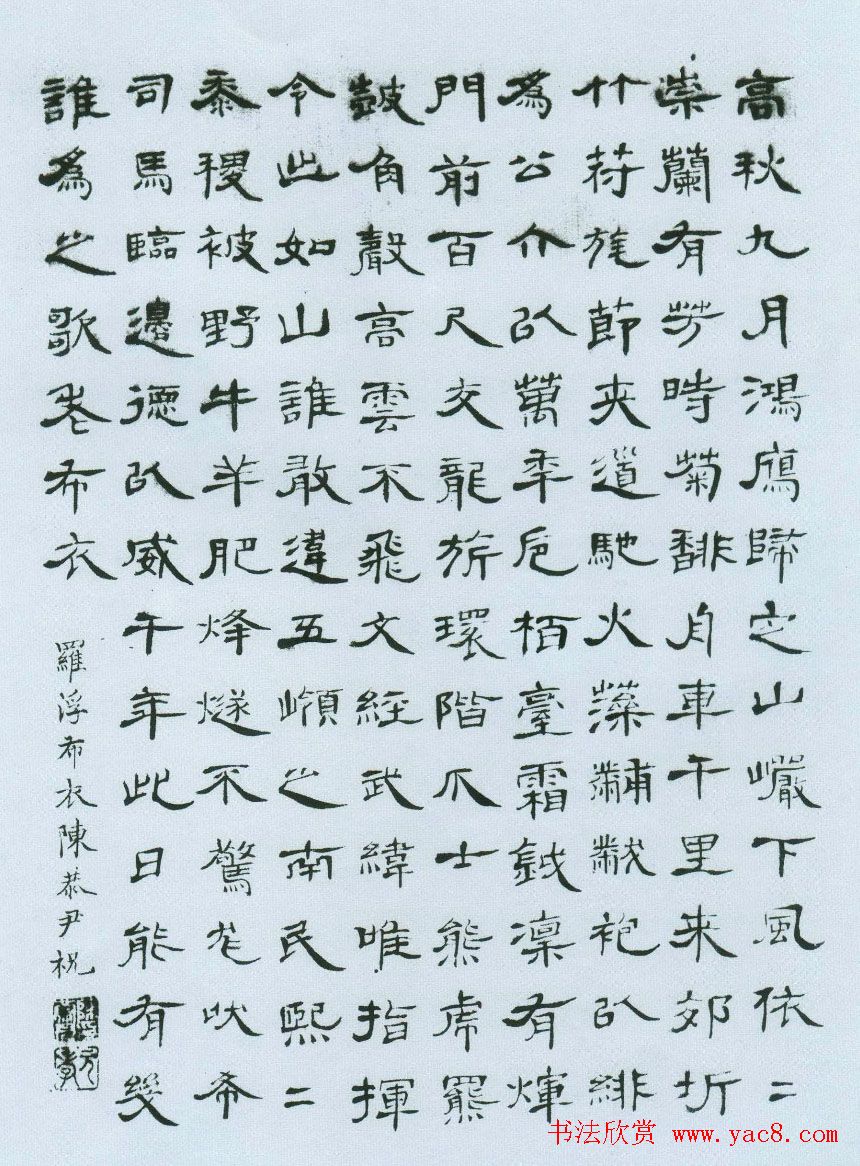 高秋九月鴻鴈歸它山巗下風依二
崇蘭有芳時菊馡自車千里来郊圻
竹苻旄節夾道馳火藻黼黻袍以緋
為公介以萬年卮栢臺霜鉞凜有煇
門前百尺交龍旂環階爪士熊虎羆
皷角聲高雲不飛文經武緯唯指揮
令出如山誰敢違五嶺之南民熙二
黍稷被野牛羊肥烽燧不驚尨吠希
司馬臨邊德以威千年此日能有幾
誰為之歌老布衣
羅浮布衣陳恭尹祝
书法欣赏 www.yac8.com